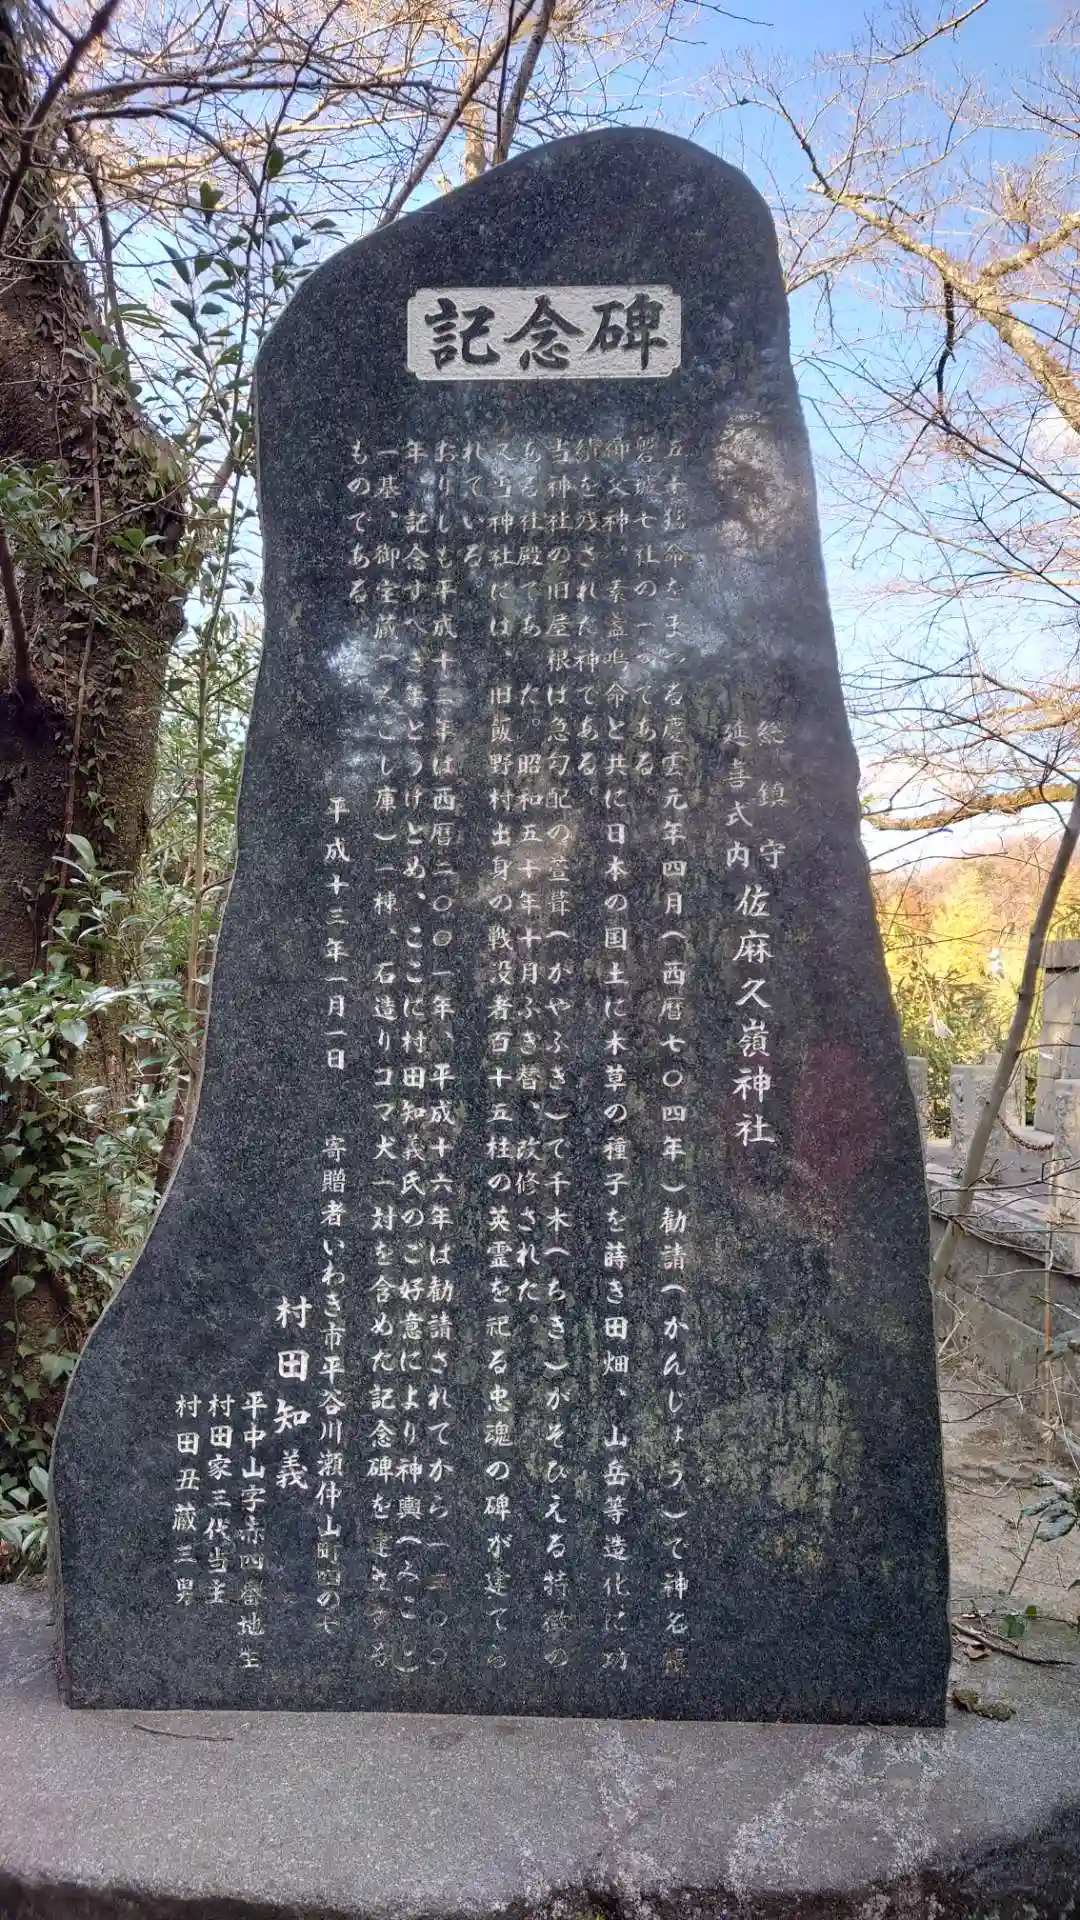 記念碑
総鎮守
延喜式内
佐麻久嶺神社
五十猛命をまつる慶雲元年四月(西暦七〇四年)勧請(かんじょう)で神名帳
磐城七社の一つである
御父神。素盞嗚命と共に日本の国土に木草の種子を蒔き田畑、山岳等造化に功
績を残された神である。
当神社の旧屋根は急勾配の萱葺(かやふき)て千木(ちぎ)がそびえる特徴の
ある社殿であった。昭和五十年十月ふき替、改修された。
又当神社には、旧飯野村出身の戦没者百十五柱の英霊を祀る忠魂の碑が建てら
れている
おりしも平成十三年は西暦二〇〇一年、平成十六年は勧請されてから一三〇〇
年、記念すべき年とうけとめ、ここに村田知義氏のご好意により神輿(みこし)
一基、御宝蔵(みこし庫)一棟、石造りコマ犬一対を含めた記念碑を建立する
ものである
平成十三年一月一日
寄贈者いわき市平谷川瀬仲山町四の七
村田知義
平中山字赤四番地生
村田家三代当主
村田丑蔵三男